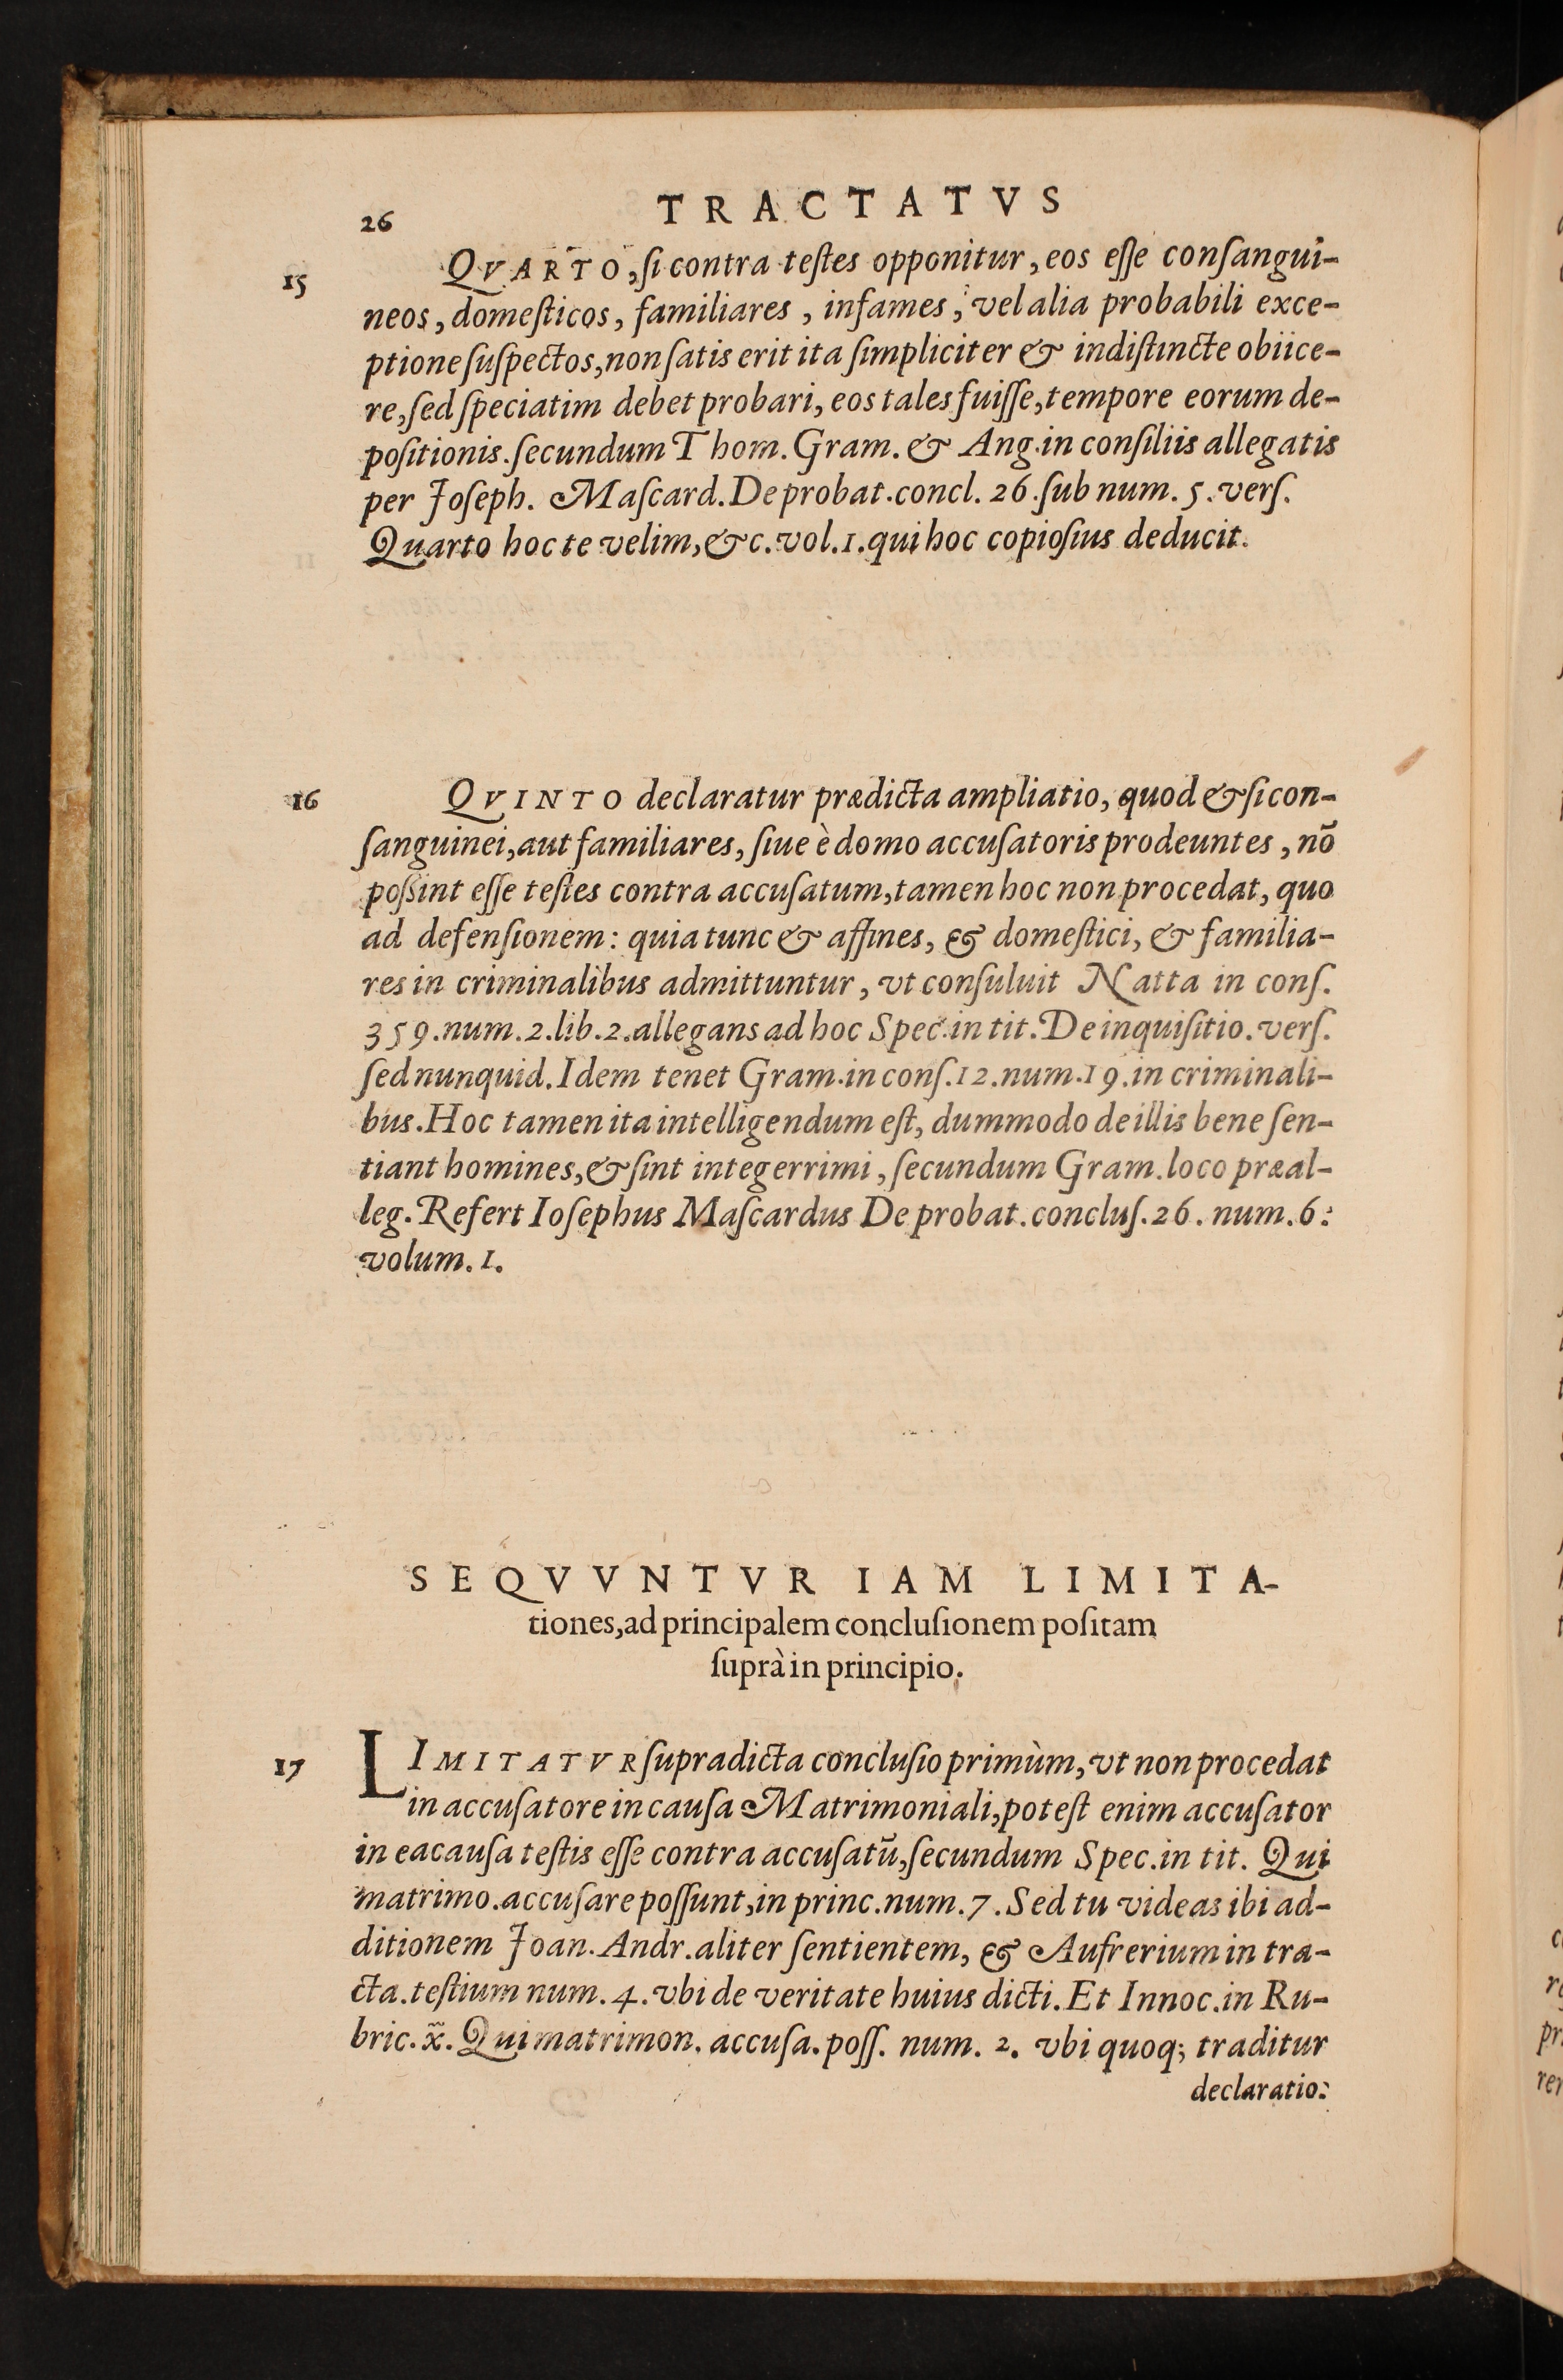 26 TRACTATVS
15 QVARTO, ſi contra teſtes opponitur, eos eſſe conſangui-
neos, domeſticos, familiares, infames, vel alia probabili exce-
ptione ſuſpectos, non ſatis erit ita ſimpliciter & indiſtincte obiice-
re, ſed ſpeciatim debet probari, eos tales fuiſſe, tempore eorum de-
poſitionis. ſecundum Thom. Gram. & Ang. in conſiliis allegatis
per Joſeph. Maſcard. De probat. concl. 26. ſub num. 5. verſ.
Quarto hoc te velim, &c. vol. 1. qui hoc copioſius deducit.
16 QVINTO declaratur prædicta ampliatio, quod & ſi con-
ſanguinei, aut familiares, ſiue è domo accuſatoris prodeuntes, nõ
poßint eſſe teſtes contra accuſatum, tamen hoc non procedat, quo
ad defenſionem: quia tunc & affines, & domeſtici, & familia-
res in criminalibus admittuntur, vt conſuluit Natta in conſ.
359. num. 2. lib. 2. allegans ad hoc Spec. in tit. De inquiſitio. verſ.
ſed nunquid. Idem tenet Gram. in conſ. 12. num. 19. in criminali-
bus. Hoc tamen ita intelligendum eſt, dummodo de illis bene ſen-
tiant homines, & ſint integerrimi, ſecundum Gram. loco præal-
leg. Refert Ioſephus Maſcardus De probat. concluſ. 26. num. 6:
volum. 1.
SEQVVNTVR IAM LIMITA-
tiones, ad principalem concluſionem poſitam
ſuprà in principio.
17 LIMITATVR ſupradicta concluſio primùm, vt non procedat
in accuſatore in cauſa Matrimoniali, poteſt enim accuſator
in ea cauſa teſtis eſſe contra accuſatũ, ſecundum Spec. in tit. Qui
matrimo. accuſare poſſunt, in princ. num. 7. Sed tu videas ibi ad-
ditionem Joan. Andr. aliter ſentientem, & Aufrerium in tra-
cta. teſtium num. 4. vbi de veritate huius dicti. Et Innoc. in Ru-
bric. x̃. Qui matrimon. accuſa. poſſ. num. 2. vbi quoq; traditur
declaratio: